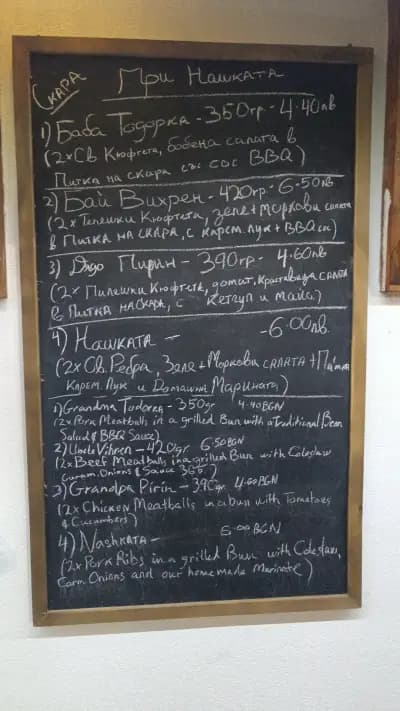 Скара
При Нашката
1) Баба Тодорка - 350гр - 4.40лв
(2xСв. Кюфтета, бобена салата в
Питка на скара със сос BBQ)
2) Бай Вихрен - 420гр. - 6.50лв
(2x Телешки Кюфтета, зеле + моркови салата
в Питка на скара, с карам. лук + BBQ сос)
3) Дядо Пирин - 390гр. - 4.60лв
(2x Пилешки Кюфтета, домат, краставица салата
в Питка на скара, с Кетчуп и майо.)
4) Нашката - - 6.00лв.
(2x Св. Ребра, Зеле + Моркови салата + Питка
Карам. Лук и Домашна Марината)
1) Grandma Todorka - 350gr 4.40BGN
(2x Pork Meatballs in a grilled Bun with a Traditional Bean
Salad & BBQ Sauce)
2) Uncle Vihren - 420gr 6.50BGN
(2x Beef Meatballs in a grilled Bun with Coleslaw
Caram. Onions & Sauce 365)
3) Grandpa Pirin - 390gr 4.60BGN
(2x Chicken Meatballs in a bun with Tomatoes
& Cucumbers)
4) Nashkata - 6.00BGN
(2x Pork Ribs in a grilled Bun with Coleslaw,
Caram. Onions and our homemade Marinate)